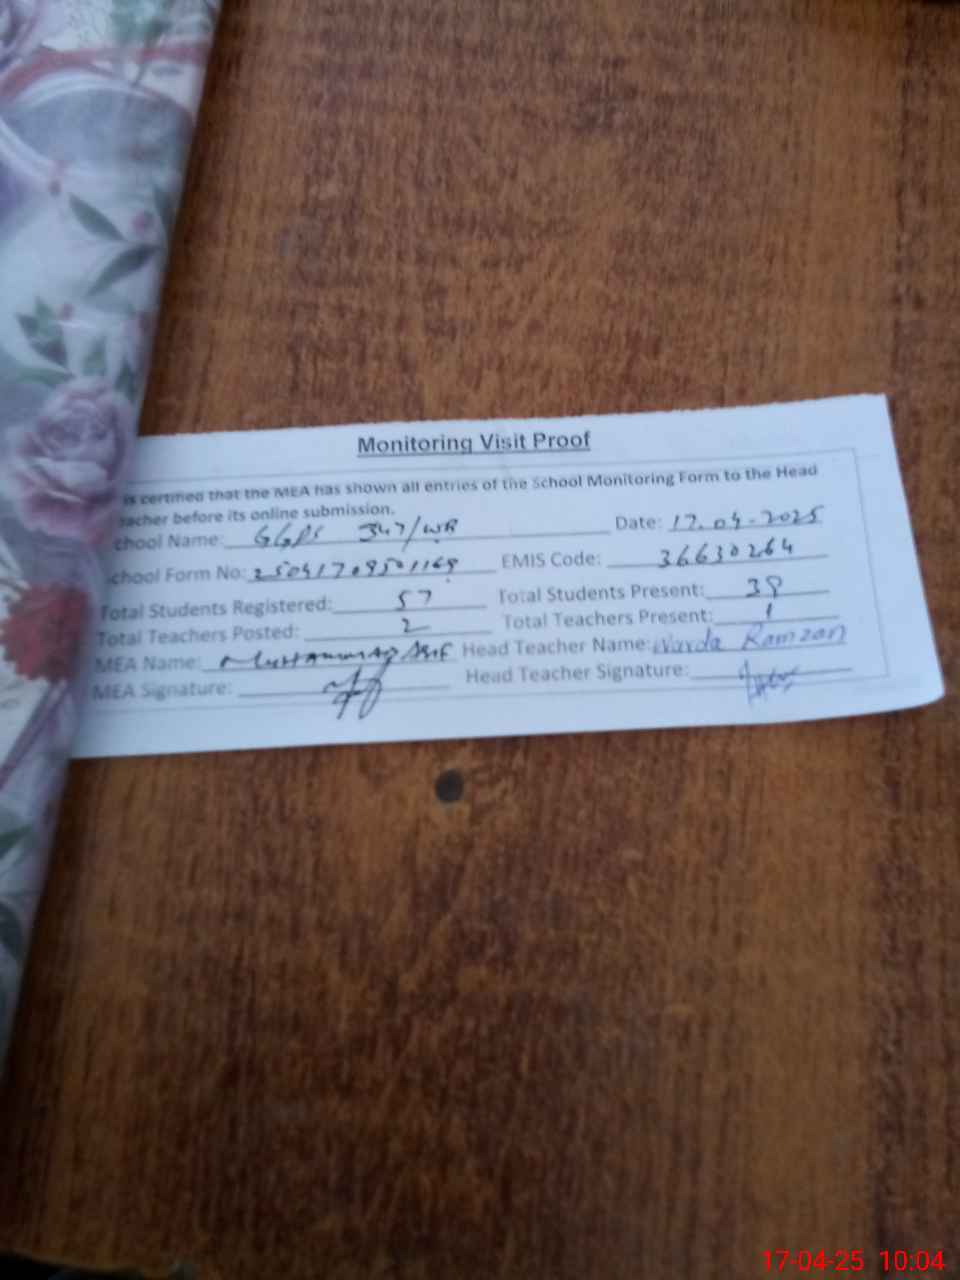 Monitoring Visit Proof
is certified that the MEA has shown all entries of the School Monitoring Form to the Head
eacher before its online submission.
chool Name: GGPS 347/WB Date: 17.04.2025
chool Form No: EMIS Code: 36630264
Total Students Registered: 57 Total Students Present: 38
Total Teachers Posted: 2 Total Teachers Present: 1
MEA Name: Muhammad Asif Head Teacher Name: Warda Ramzan
MEA Signature: Head Teacher Signature:
17-04-25 10:04